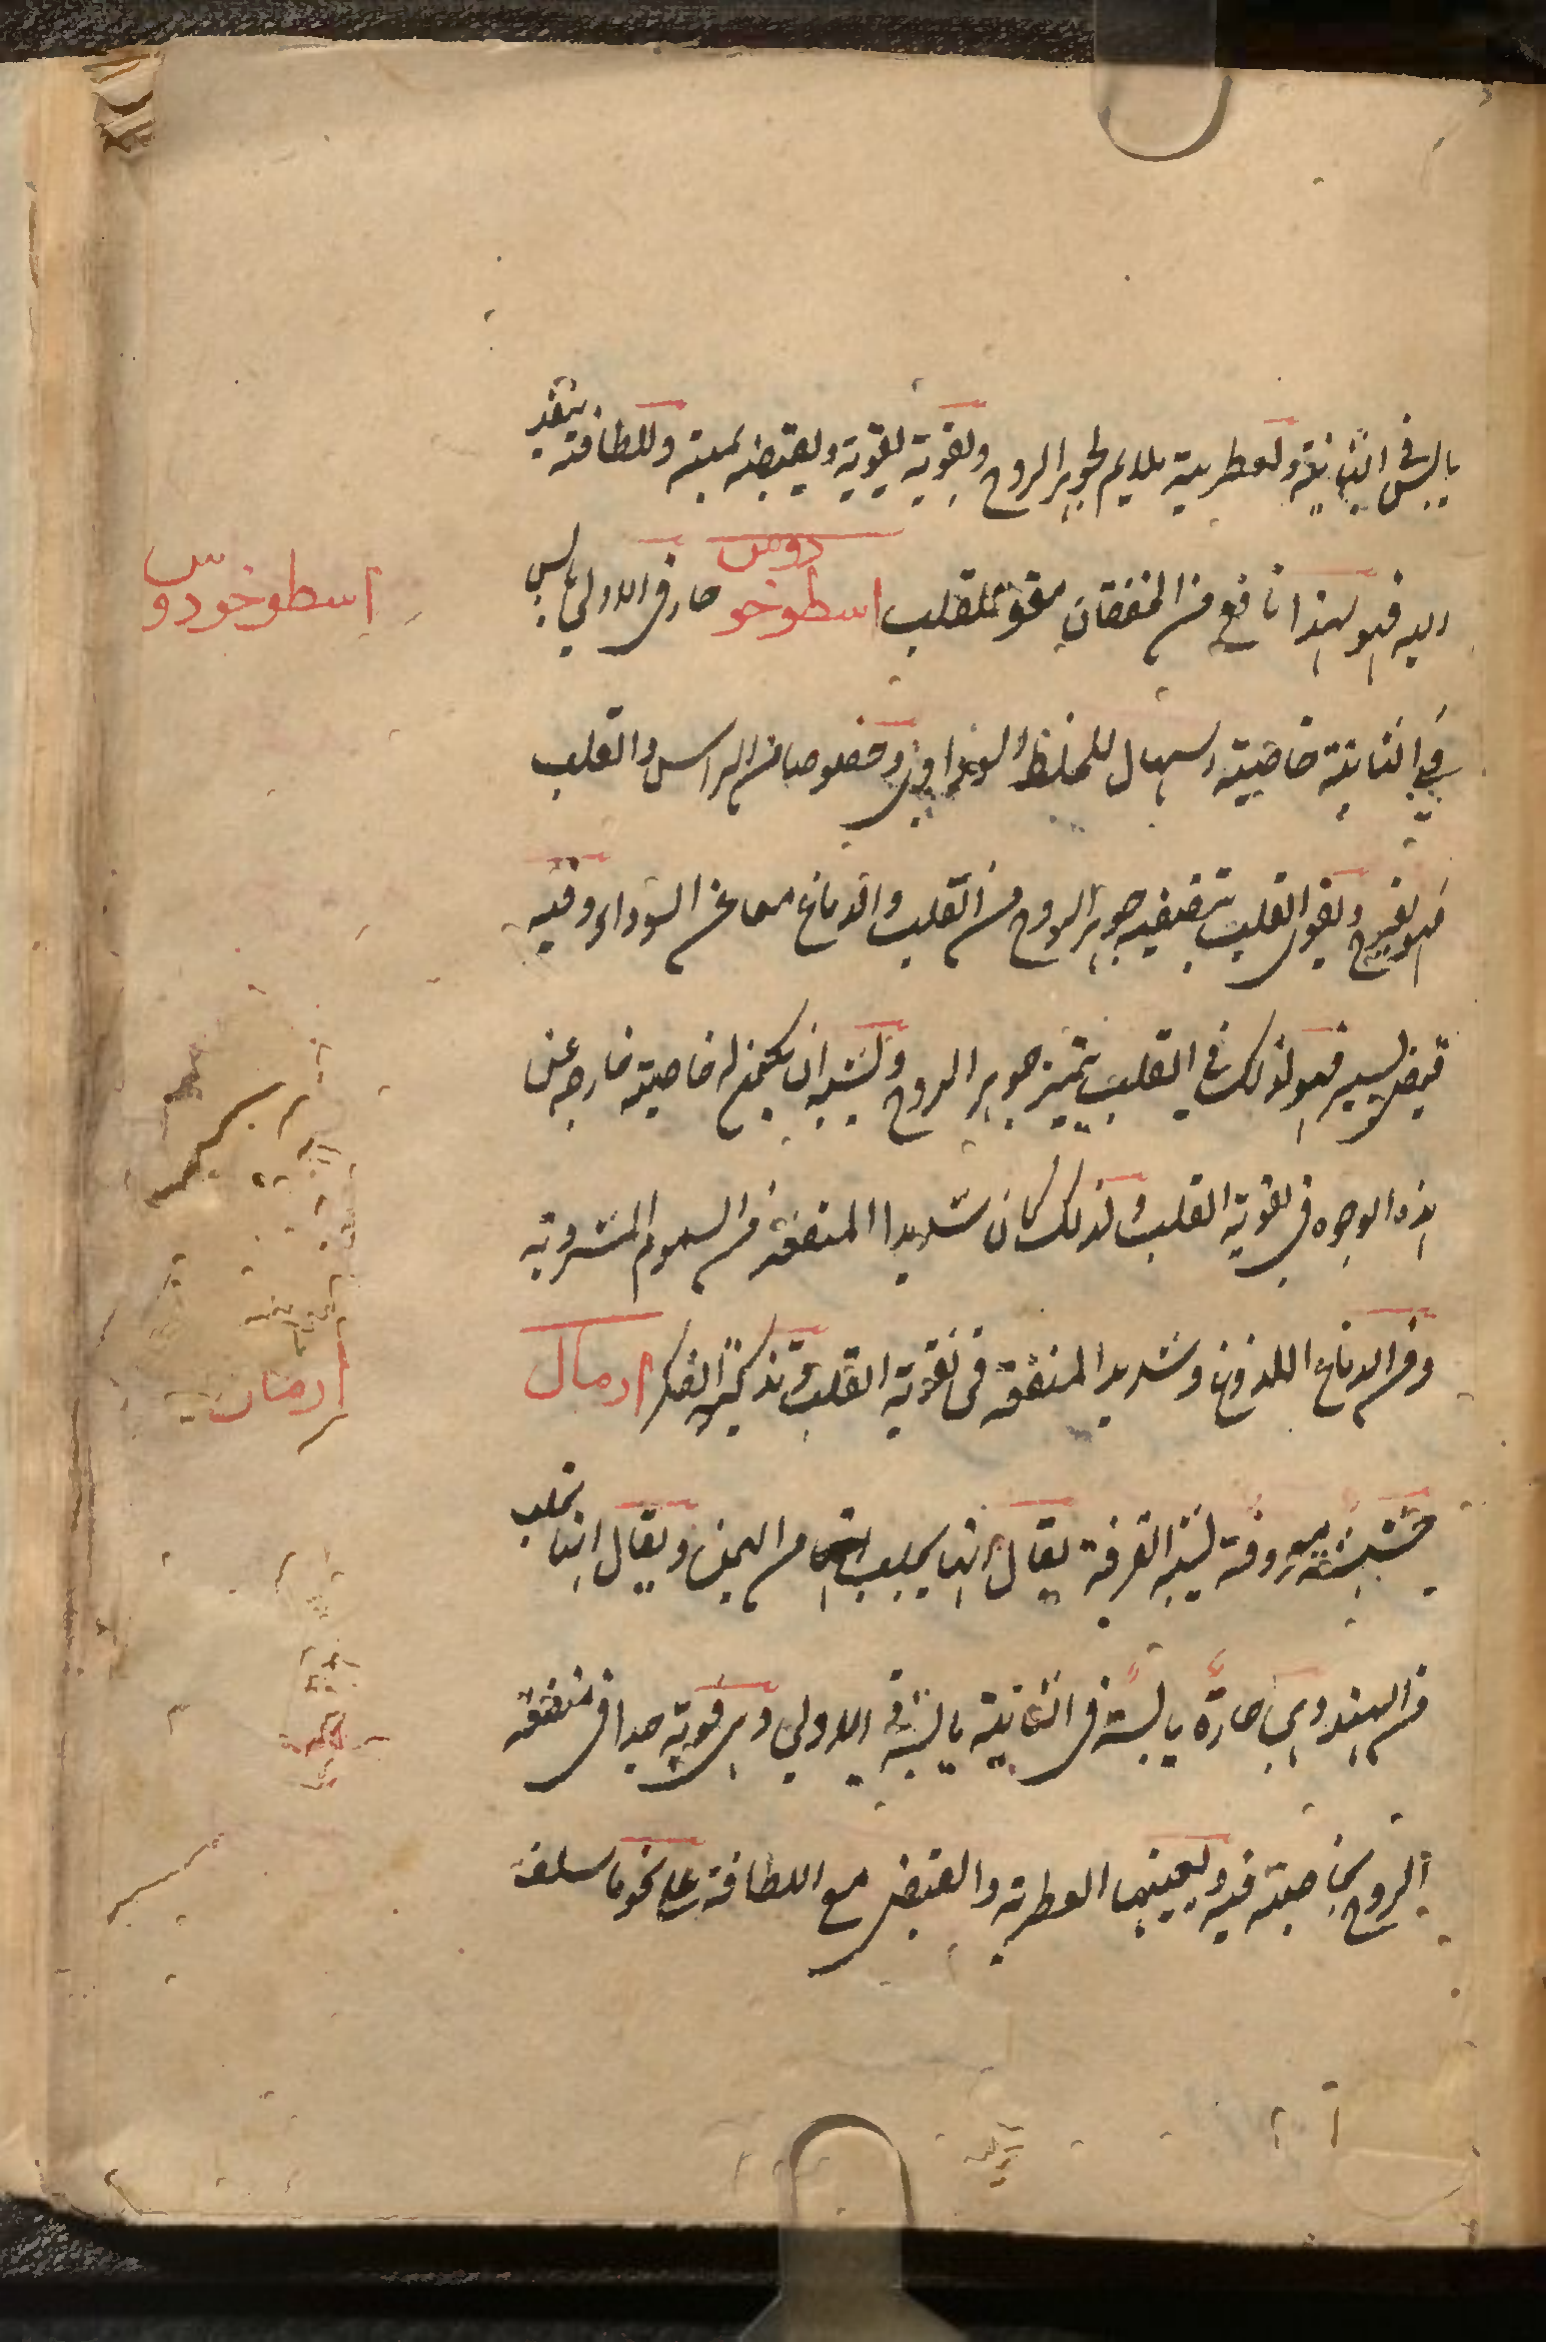 يابس في الثانية ولعطريته يلايم لجوهر الروح وبقوية يقويه وبقبضه يمتنه وللطافته ينفذ
اليه فهو لهذا نافع من الخفقان مقو للقلب اسطوخودوس حار في الاولى يابس
اسطوخودوس
في الثانية خاصيته اسهال للخلط السوداوي وخصوصا من الراس والقلب
فهو يفرح ويقوى القلب بتصفيه جوهر الروح من القلب والدماغ معا عن السوداء وفيه
قبض يسير فهو لذلك في القلب يمتن جوهر الروح ويشبه ان يكون له خاصيته خارجه عن
هذه الوجوه في تقوية القلب ولذلك كان شديدا المنفعة من السموم المشروبة
ومن الدماغ اللذوغ وشديد المنفعة في تقوية القلب وتذكية الفكر ارمال
ارمان
خشبة معروفة تشبه القرفة يقال انها يجلب من اليمن ويقال انها يجلب
من الهند وهي حارة يابسة في الثانية يابسة في الاولى وهي قوية جدا في منفعة
الروح بخاصيته فيه ويعينها العطرية والقبض مع اللطافة على نحو ما سلف